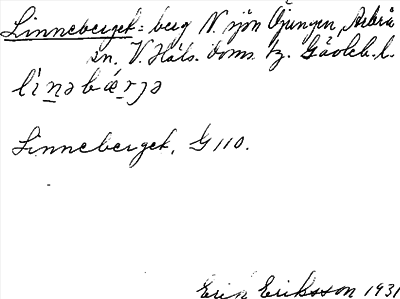 Linneberget = berg N. sjön Öjungen, Arbrå
sn. V. Häls. doms. tz. Gävleb. l.
lìn̲əbǽr̲jə
Linneberget, G 110.
Erik Eriksson 1931